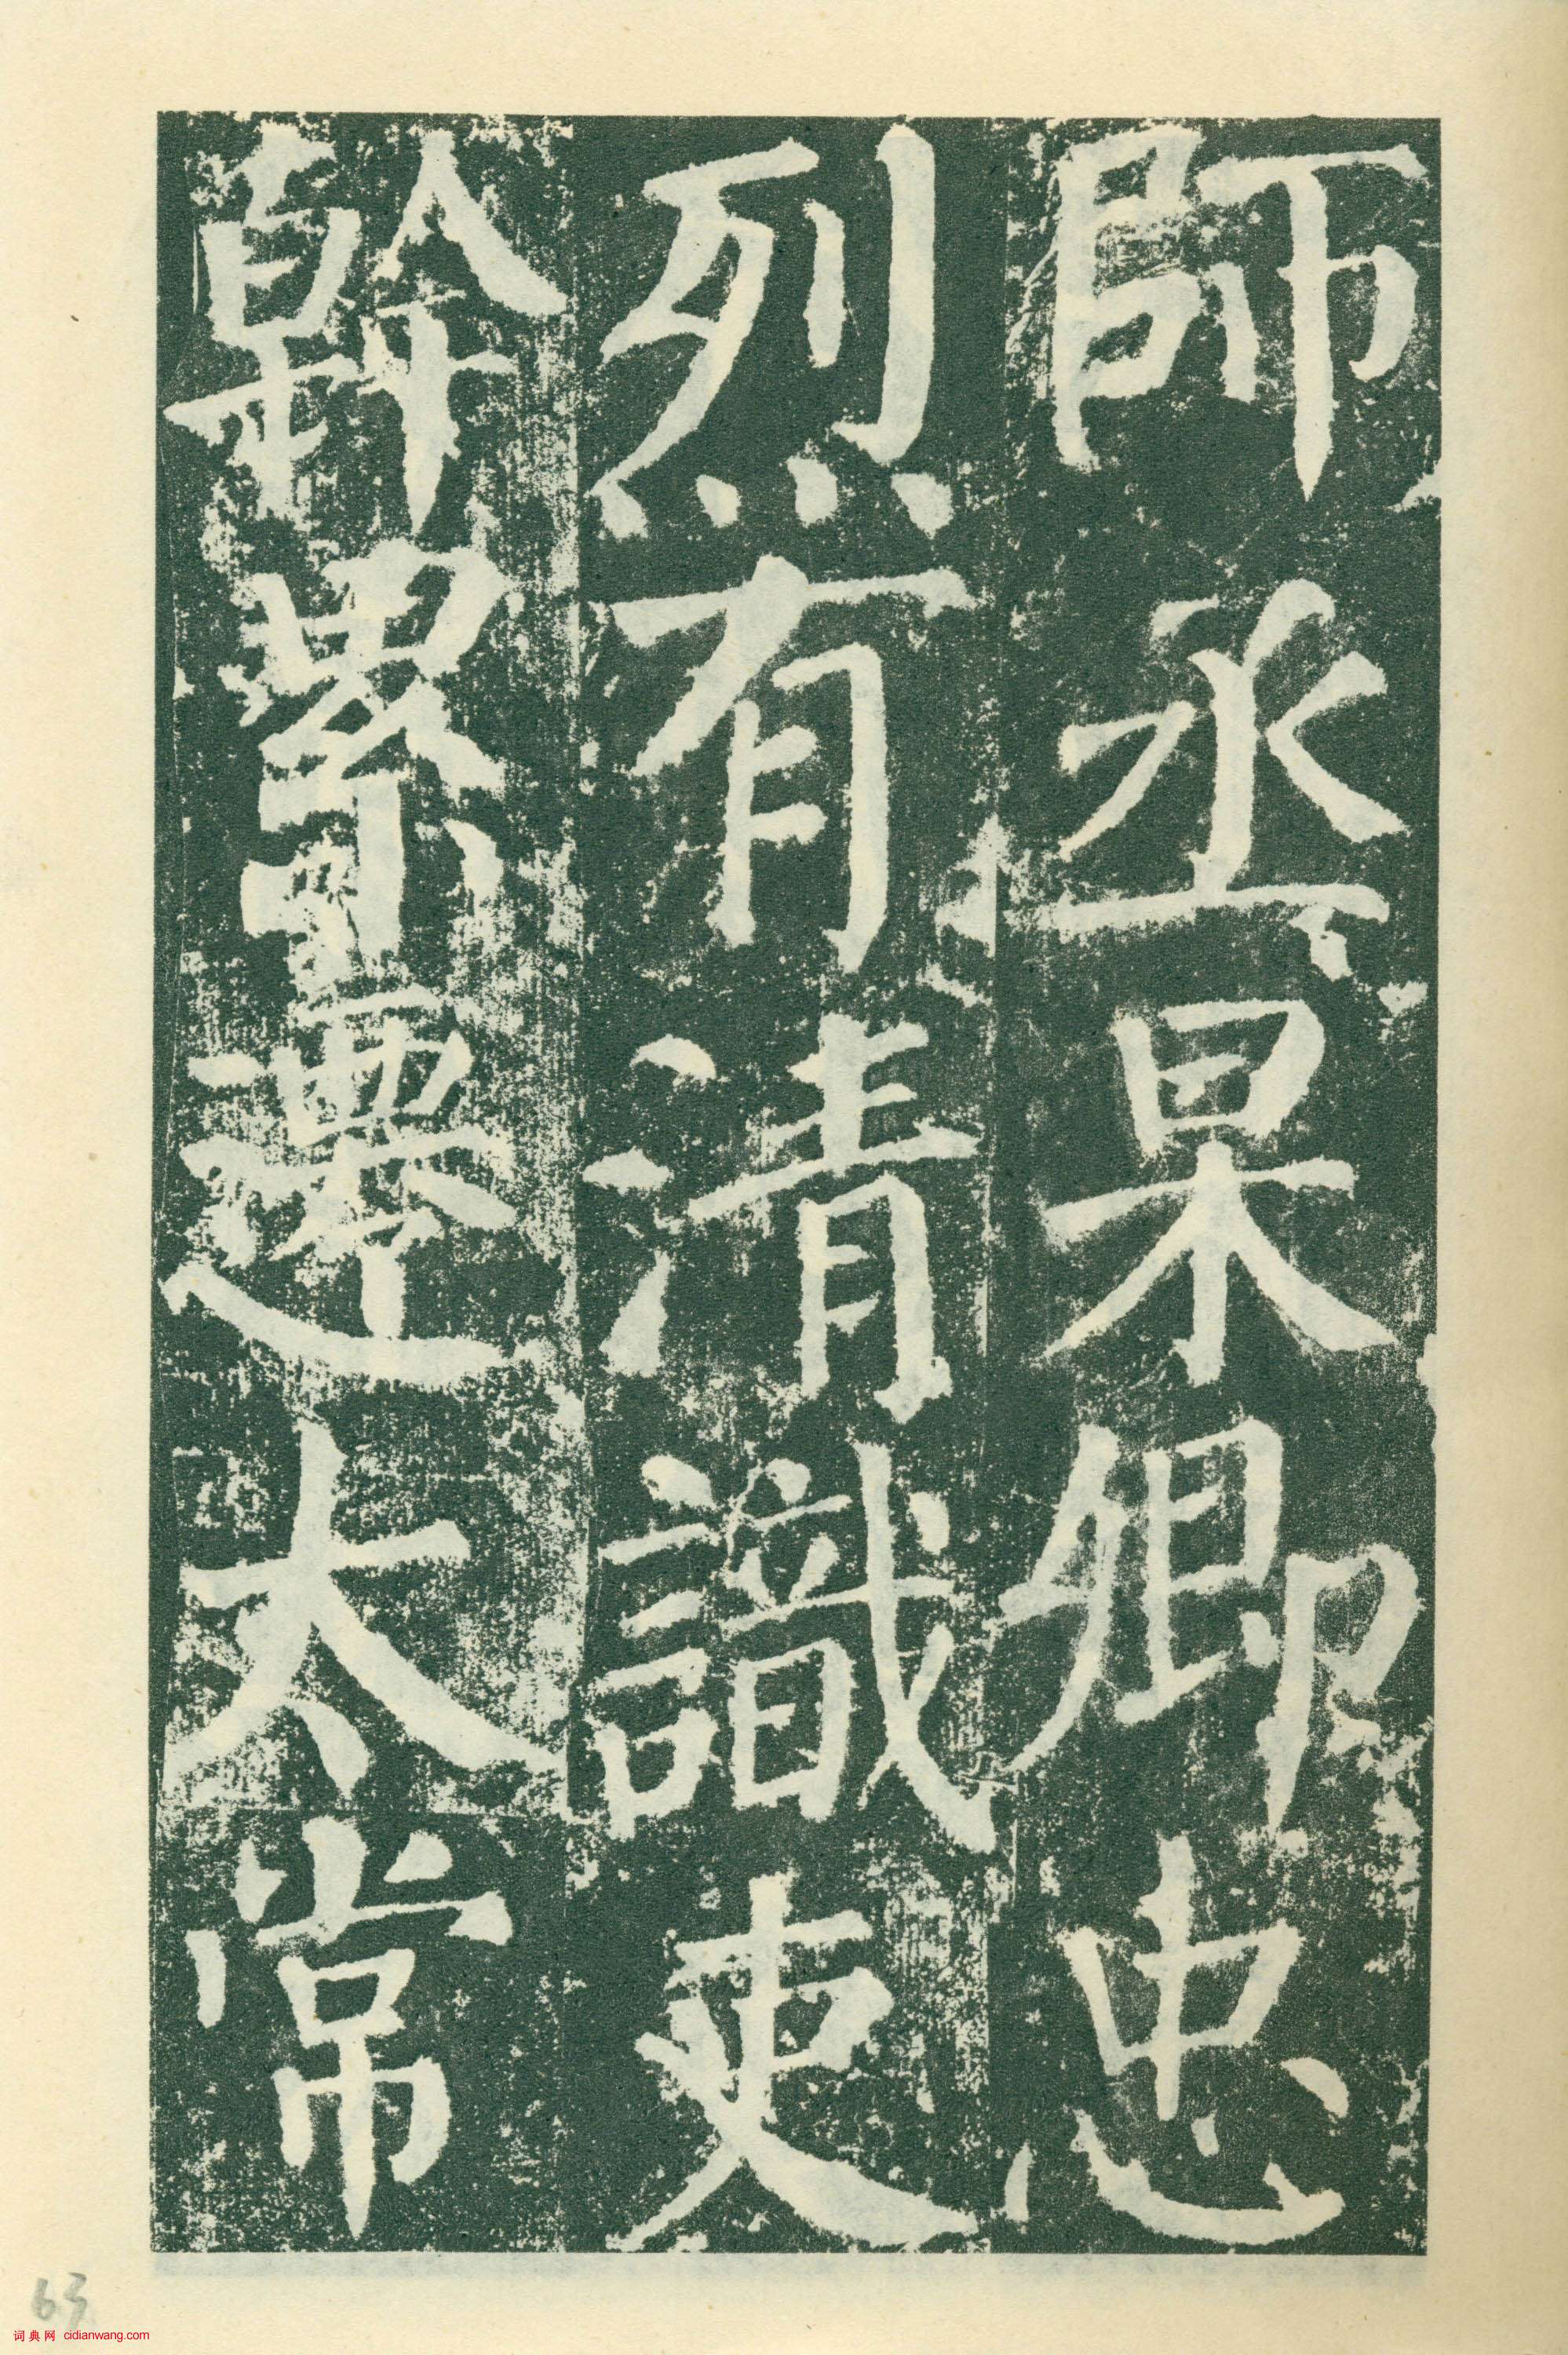 師丞杲卿忠
烈有清識吏
幹累遷太常
63
词典网 cidianwang.com